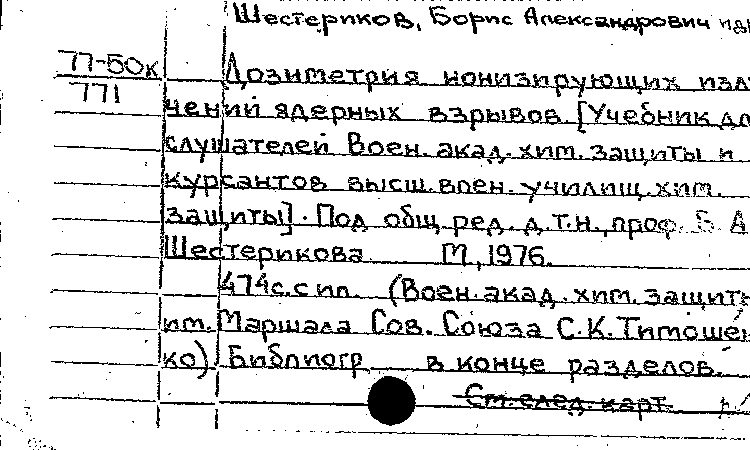 Шестериков, Борис Александрович
77-50к
771
Дозиметрия ионизирующих излу
чений ядерных взрывов. [Учебник дл
слушателей Воен. акад. хим. защиты и
курсантов высш. воен. училищ хим.
защиты]. Под общ. ред. д.т.н., проф. Б. А.
Шестерикова М., 1976.
474с. с ил. (Воен. акад. хим. защиты
им. Маршала Сов. Союза С.К. Тимошен
ко). Библиогр. в конце разделов.
См. след. карт.